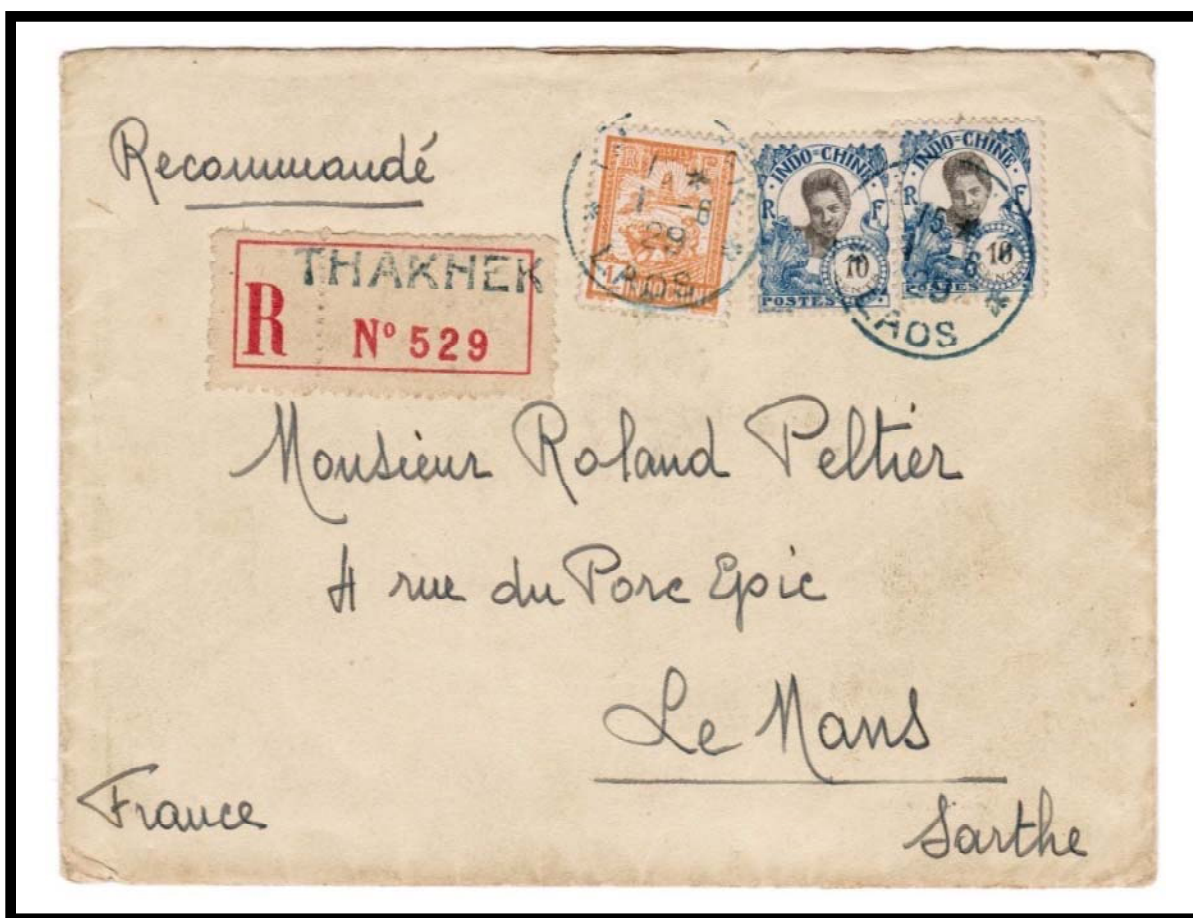 Recommandé
THAKHEK
R N° 529
R F
INDOCHINE
1 -6
29
LAOS
INDO=CHINE
R F
10
POSTES
INDO=CHINE
R F
10
15 *
LAOS
Monsieur Roland Peltier
4 rue du Porc Epic
Le Mans
France
Sarthe